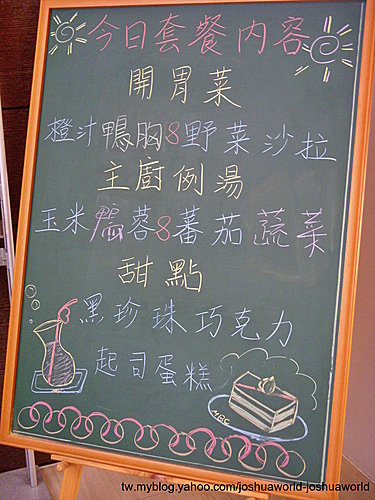 今日套餐內容
開胃菜
橙汁鴨胸8野菜沙拉
主廚例湯
玉米蓉8蕃茄蔬菜
甜點
黑珍珠巧克力
起司蛋糕
tw.myblog.yahoo.com/joshuaworld-joshuaworld